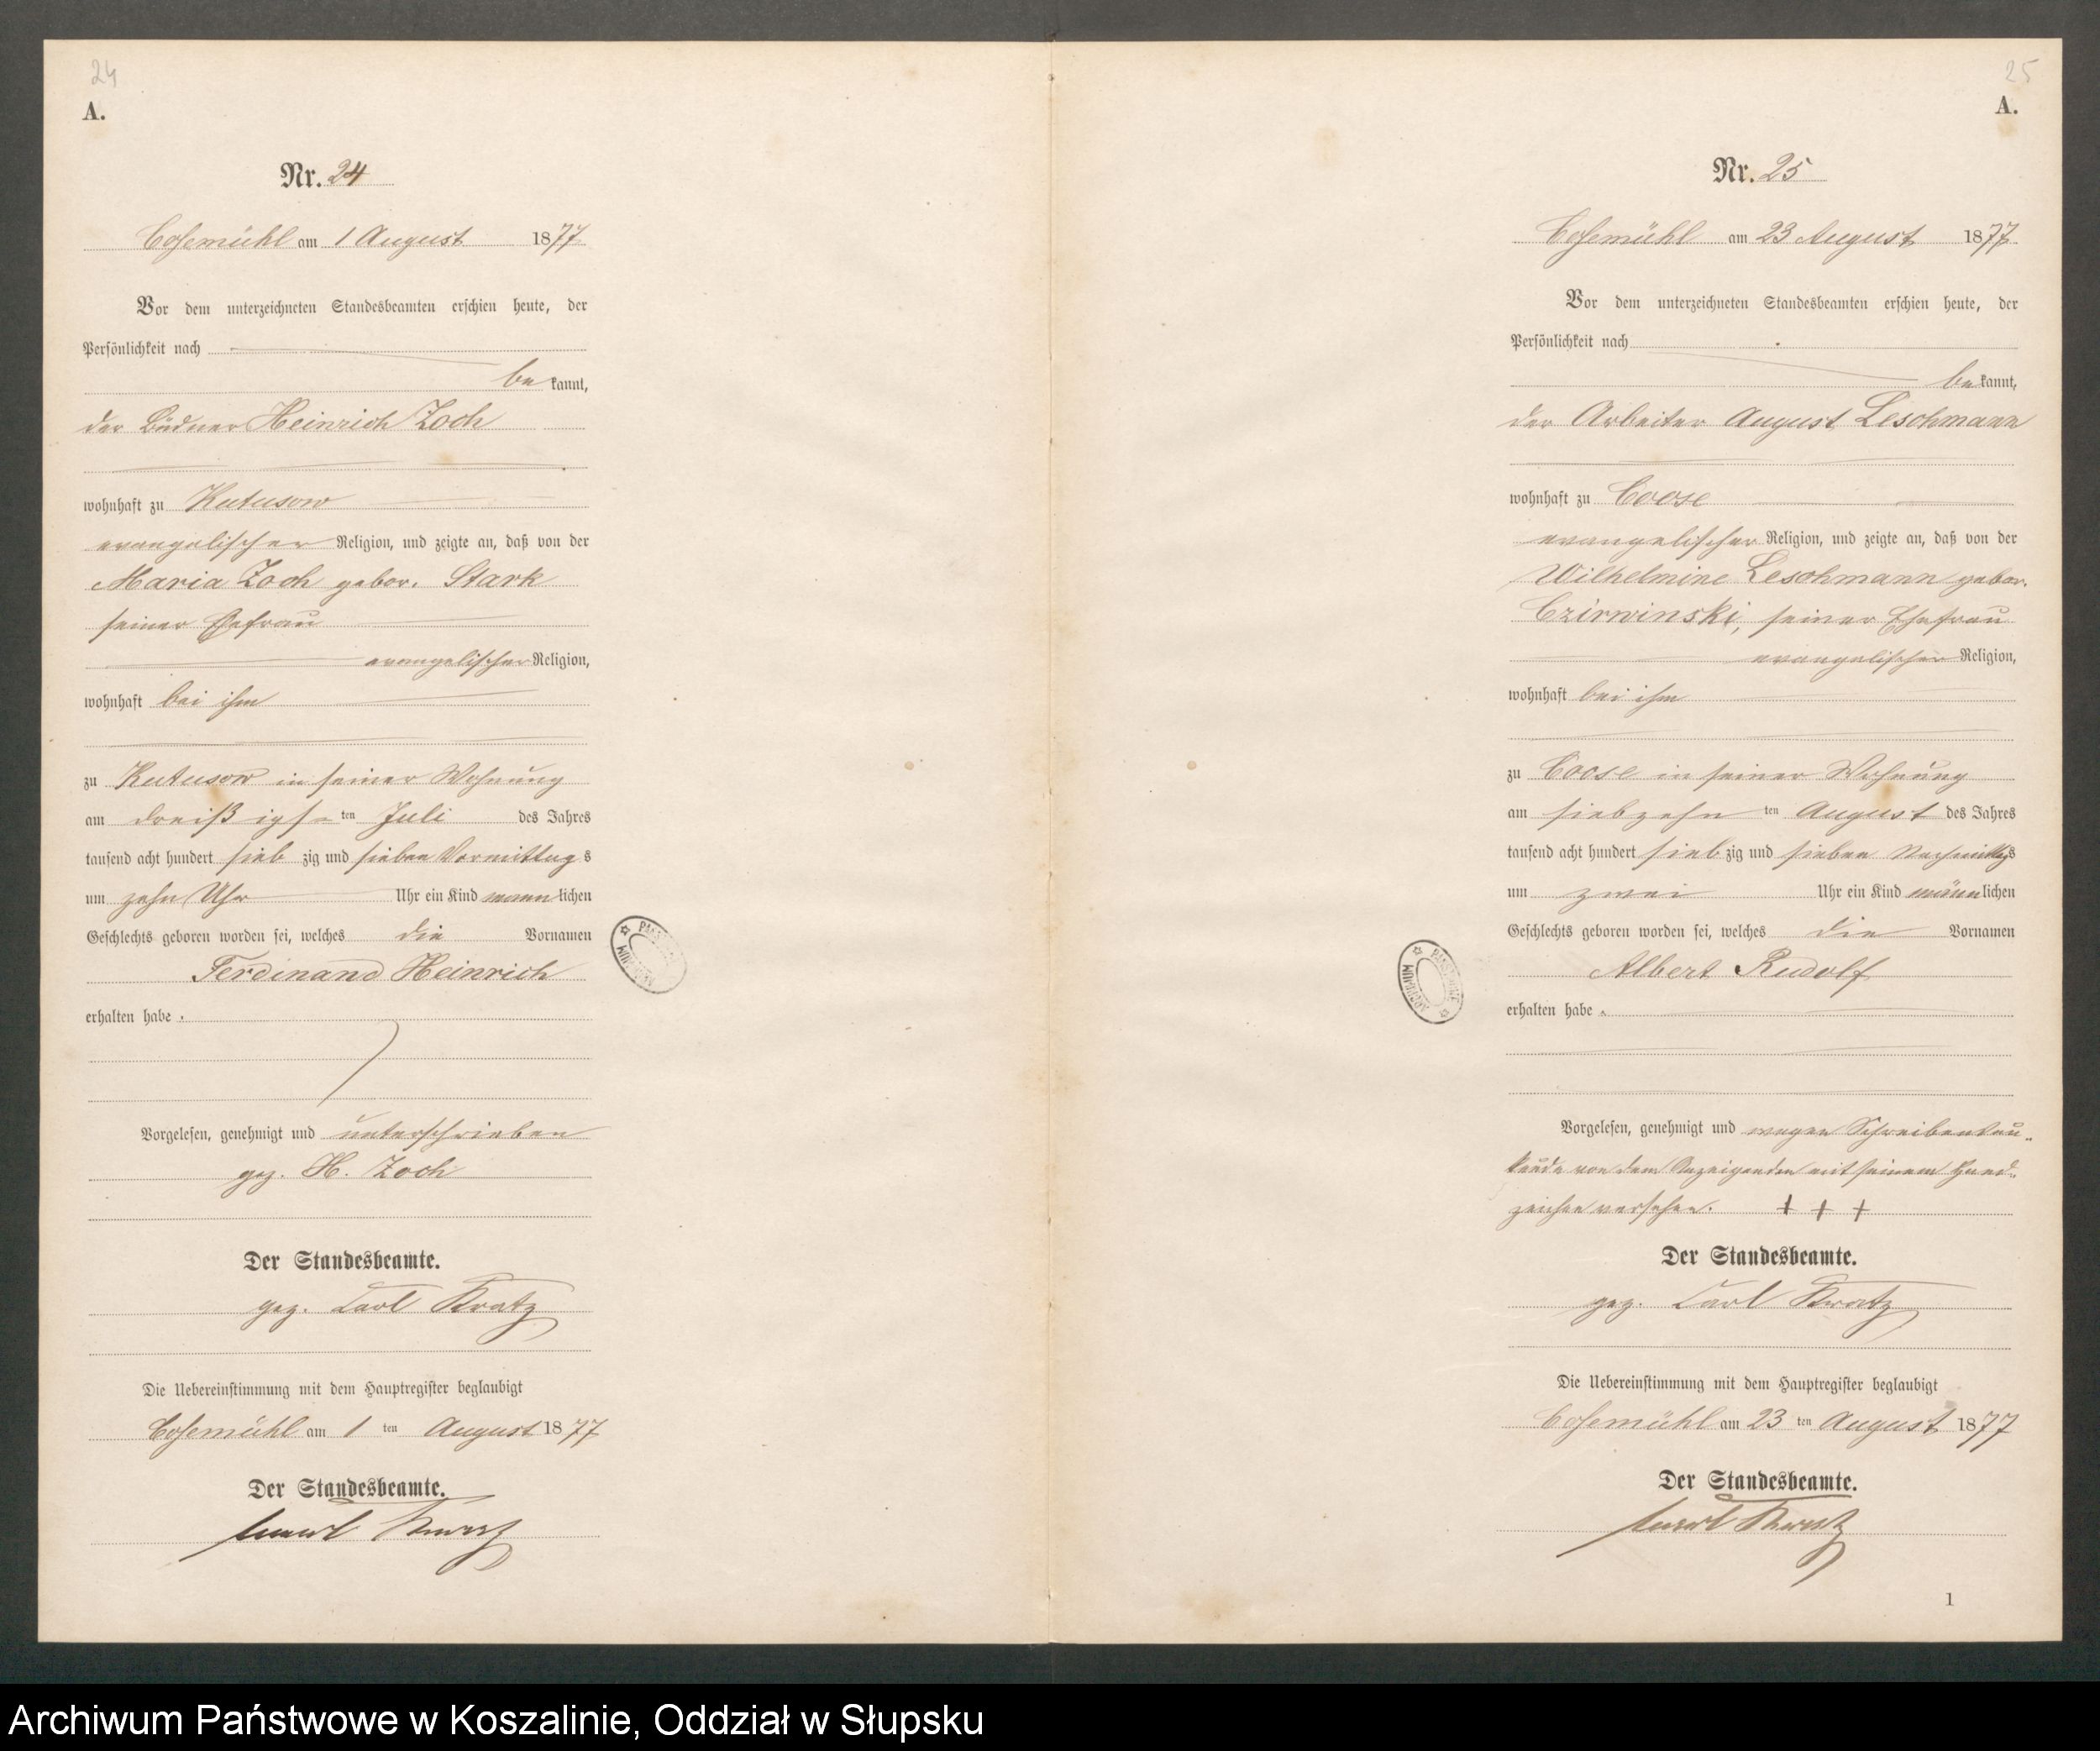 24
A.
Nr. 24
Cosemühl am 1 August 1877
Vor dem unterzeichneten Standesbeamten erschien heute, der
Persönlichkeit nach
be kannt,
der Büdner Heinrich Zoch
wohnhaft zu Kutusow
evangelischer Religion, und zeigte an, daß von der
Maria Zoch gebor. Stark
seiner Ehefrau
evangelischer Religion,
wohnhaft bei ihm
zu Kutusow in seiner Wohnung
am dreißigs- ten Juli des Jahres
tausend acht hundert sieb zig und sieben Vormittag s
um zehn Uhr Uhr ein Kind männ lichen
Geschlechts geboren worden sei, welches die Vornamen
Ferdinand Heinrich
erhalten habe.
Vorgelesen, genehmigt und unterschrieben
gez. H. Zoch
Der Standesbeamte.
gez. Carl Kratz
Die Uebereinstimmung mit dem Hauptregister beglaubigt
Cosemühl am 1 ten August 1877
Der Standesbeamte.
Carl Kratz
25
A.
Nr. 25
Cosemühl am 23 August 1877
Vor dem unterzeichneten Standesbeamten erschien heute, der
Persönlichkeit nach
be kannt,
der Arbeiter August Leschmann
wohnhaft zu Coose
evangelischer Religion, und zeigte an, daß von der
Wilhelmine Leschmann gebor.
Czirwinski, seiner Ehefrau
evangelischer Religion,
wohnhaft bei ihm
zu Coose in seiner Wohnung
am siebzehn ten August des Jahres
tausend acht hundert sieb zig und sieben Nachmittags
um zwei Uhr ein Kind männ lichen
Geschlechts geboren worden sei, welches die Vornamen
Albert Rudolf
erhalten habe.
Vorgelesen, genehmigt und wegen Schreibensun-
kunde von dem Anzeigenden mit seinem Hand-
zeichen versehen. + + +
Der Standesbeamte.
gez. Carl Kratz
Die Uebereinstimmung mit dem Hauptregister beglaubigt
Cosemühl am 23 ten August 1877
Der Standesbeamte.
Carl Kratz
1
Archiwum Państwowe w Koszalinie, Oddział w Słupsku